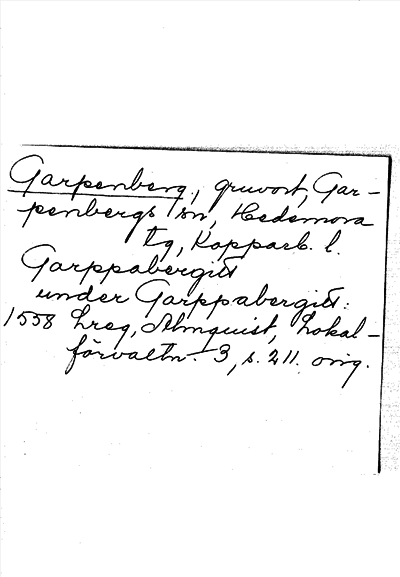 Garpenberg, gruvort, Gar-
penbergs sn, Hedemora
tg, Kopparb. l.
Garppabergitt
under Garppabergitt:
1558 Lreg, Almquist, Lokal-
förvaltn. 3, s. 211. orig.